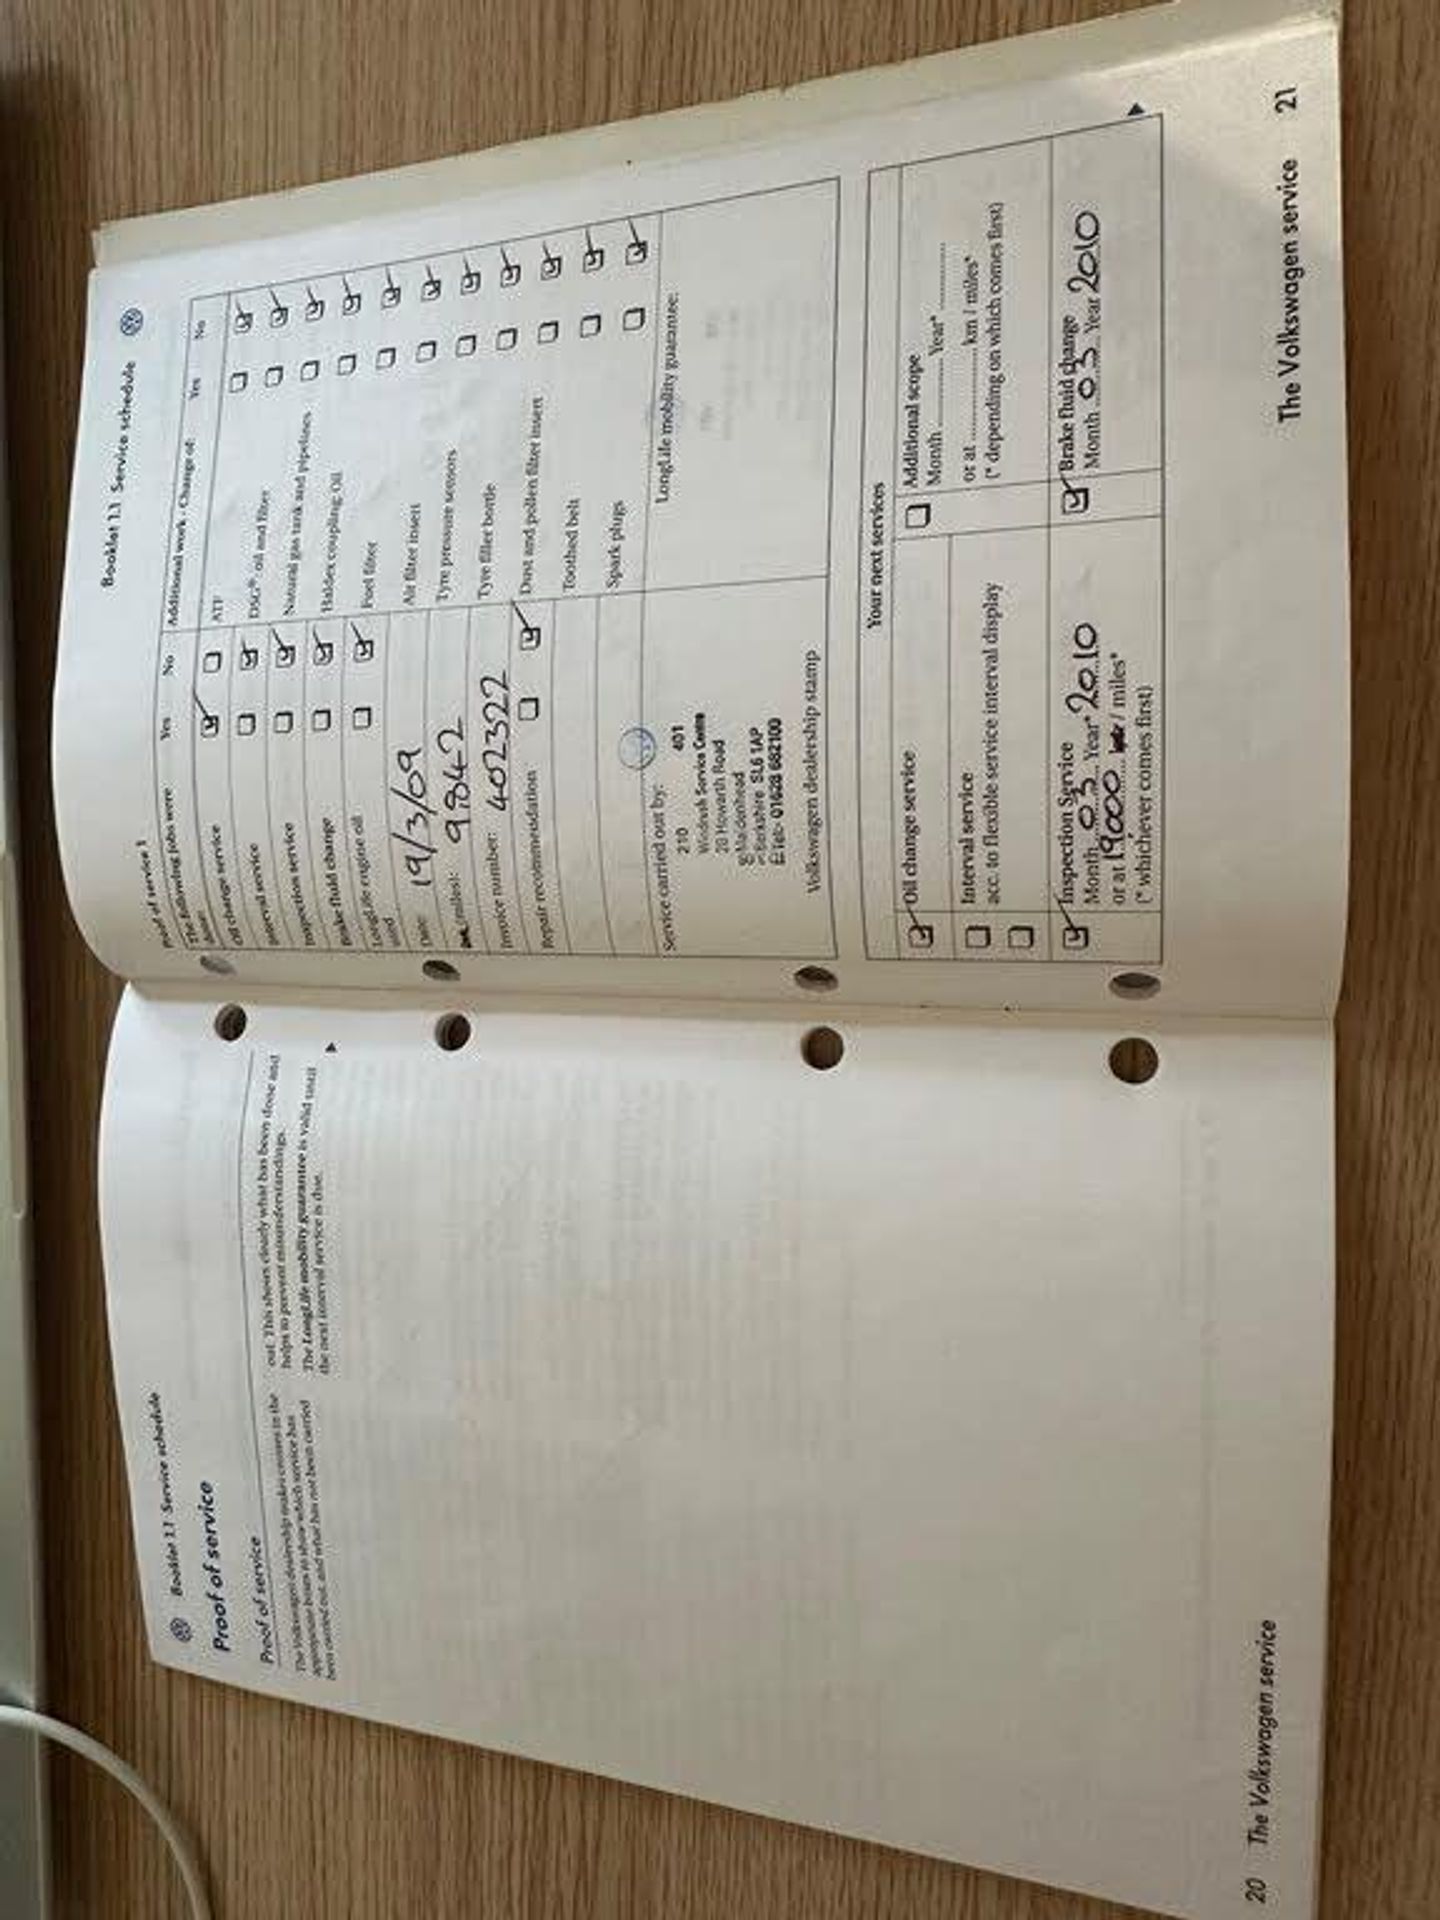 Booklet 1.1 Service schedule
Proof of service
Proof of service
The Volkswagen dealership makes crosses in the
appropriate boxes to show which service has
been carried out and what has not been carried
out. This shows clearly what has been done and
helps to prevent misunderstandings.
The LongLife mobility guarantee is valid until
the next interval service is due.
20 The Volkswagen service
Booklet 1.1 Service schedule
Proof of service 1
The following jobs were
done: Yes No
Oil change service
Interval service
Inspection service
Brake fluid change
LongLife engine oil
used
Date: 19/3/09
(miles): 9842
Invoice number: 402322
Repair recommendation
Additional work - Change of: Yes No
ATF
DSG®: oil and filter
Natural gas tank and pipelines
Haldex coupling: Oil
Fuel filter
Air filter insert
Tyre pressure sensors
Tyre filler bottle
Dust and pollen filter insert
Toothed belt
Spark plugs
Service carried out by:
210 401
Service Centre
20 Howarth Road
Maidenhead
Berkshire SL6 1AP
Tel:- 01628 682100
Volkswagen dealership stamp
LongLife mobility guarantee:
Your next services
Oil change service
Interval service
acc. to flexible service interval display
Additional scope
Month ............ Year* ............
or at ............ km / miles*
(* depending on which comes first)
Inspection Service
Month 03 Year* 2010
or at 19000 / miles*
(* whichever comes first)
Brake fluid change
Month 03 Year 2010
The Volkswagen service 21